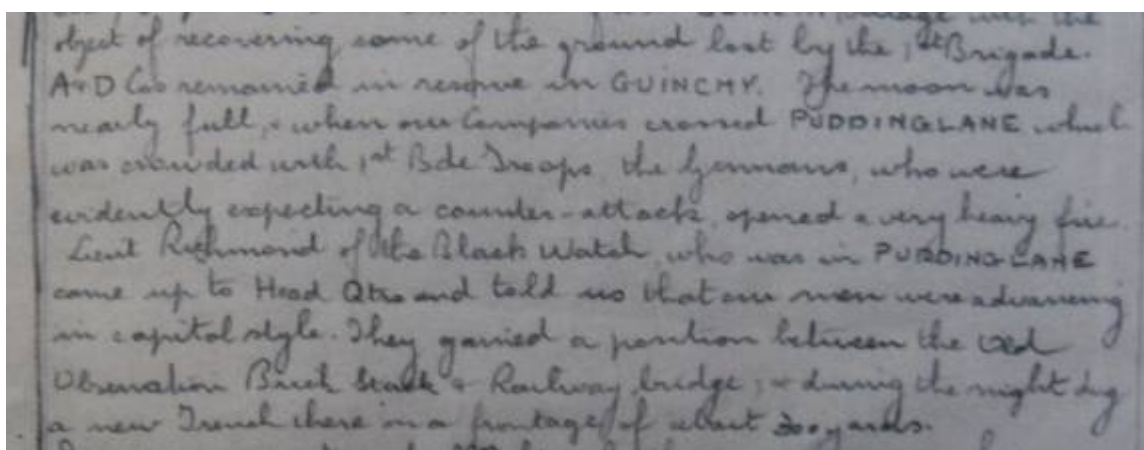 village with the
object of recovering some of the ground lost by the 1st Brigade.
A & D Cos remained in reserve in GUINCHY. The moon was
nearly full, & when our Companies crossed PUDDING LANE which
was crowded with 1st Bde Troops, the Germans, who were
evidently expecting a counter-attack, opened a very heavy fire.
Lieut Richmond of the Black Watch, who was in PUDDING LANE
came up to Head Qtrs and told us that our men were advancing
in capital style. They gained a position between the Old
Observation Brick Stack & Railway bridge; & during the night dug
a new Trench there in a frontage of about 300 yards.